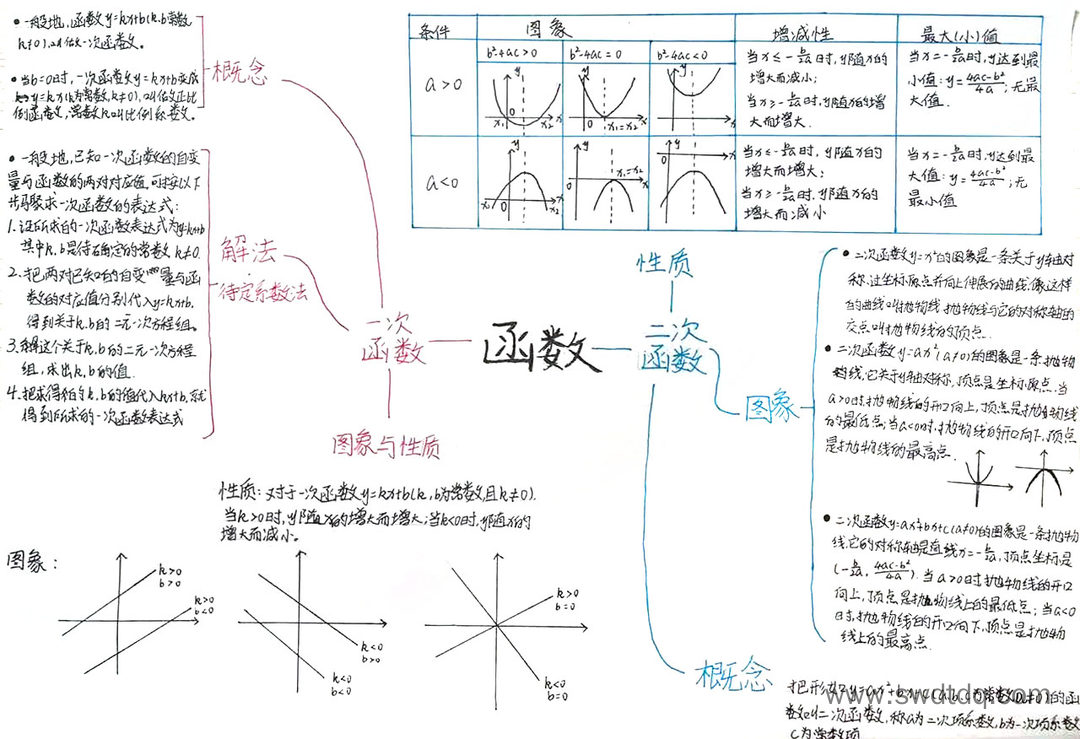 函数
一次
函数
概念
• 一般地,函数y=kx+b(k,b常数
k≠0),叫做一次函数。
• 当b=0时,一次函数y=kx+b变成
y=kx(k为常数,k≠0),叫做正比
例函数,常数k叫比例系数。
解法
待定系数法
• 一般地,已知一次函数的自变
量与函数的两对对应值,可按以下
步骤求一次函数的表达式:
1. 设所求的一次函数表达式为y=kx+b
其中k,b是待确定的常数,k≠0.
2. 把两对已知的自变量与函
数的对应值分别代入y=kx+b,
得到关于k,b的二元一次方程组。
3. 解这个关于k,b的二元一次方程
组,求出k,b的值.
4. 把求得的k,b的值代入kx+b,就
得到所求的一次函数表达式
图象与性质
性质:对于一次函数y=kx+b(k,b为常数,且k≠0).
当k>0时,y随x的增大而增大;当k<0时,y随x的
增大而减小。
图象:
k>0
b>0
k>0
b<0
k<0
b>0
k<0
b<0
k>0
b=0
k<0
b=0
二次
函数
性质
条件 图象 增减性 最大(小)值
b²-4ac>0 b²-4ac=0 b²-4ac<0
a>0
y
0
x₁
x₂
x
y
0
x₁=x₂
x
y
0
x
当x≤-b/2a时,y随x的
增大而减小;
当x≥-b/2a时,y随x的增
大而增大.
当x=-b/2a时,y达到最
小值:y=4ac-b²/4a;无最
大值.
a<0
y
x₁
0
x₂
x
y
x₁=x₂
0
x
y
0
x
当x≤-b/2a时,y随x的
增大而增大;
当x≥-b/2a时,y随x的
增大而减小
当x=-b/2a时,y达到最
大值:y=4ac-b²/4a;无
最小值
图象
• 二次函数y=x²的图象是一条关于y轴对
称,过坐标原点并向上伸展的曲线,像这样
的曲线叫抛物线,抛物线与它的对称轴的
交点叫抛物线的顶点.
• 二次函数y=ax²(a≠0)的图象是一条抛物
线,它关于y轴对称,顶点是坐标原点.当
a>0时,抛物线的开口向上,顶点是抛物线
的最低点;当a<0时,抛物线的开口向下,顶点
是抛物线的最高点.
• 二次函数y=ax²+bx+c(a≠0)的图象是一条抛物
线,它的对称轴是直线x=-b/2a,顶点坐标是
(-b/2a,4ac-b²/4a).当a>0时,抛物线的开口
向上,顶点是抛物线上的最低点;当a<0
时,抛物线的开口向下,顶点是抛物
线上的最高点.
概念
把形如y=ax²+bx+c(a,b,c为常数,a≠0)的函
数叫二次函数,称a为二次项系数,b为一次项系数
c为常数项
www.swdtdq.com